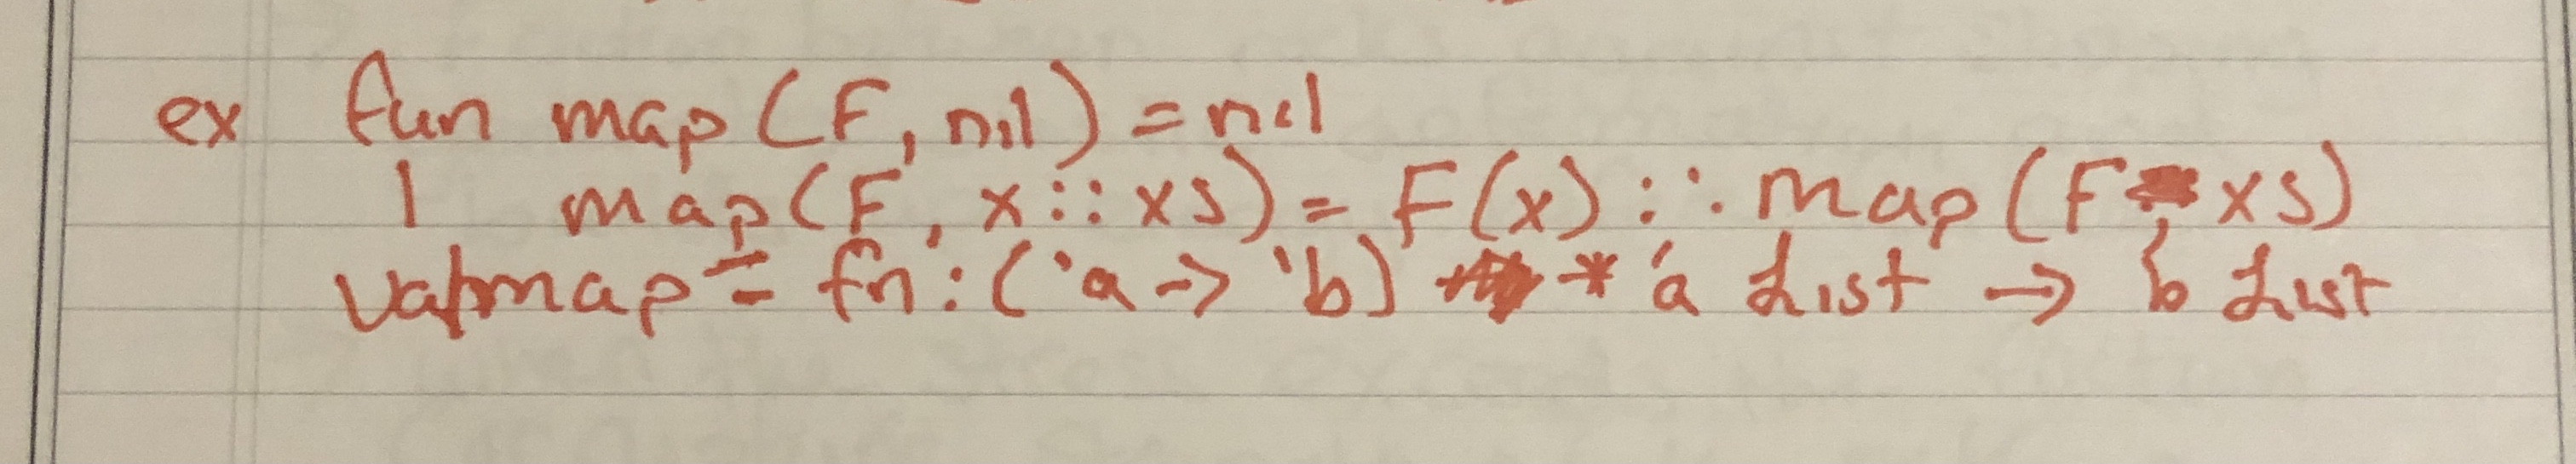 ex fun map(F, nil) = nil
| map(F, x::xs) = F(x) :: map(F, xs)
val map = fn : ('a -> 'b) * 'a list -> 'b list